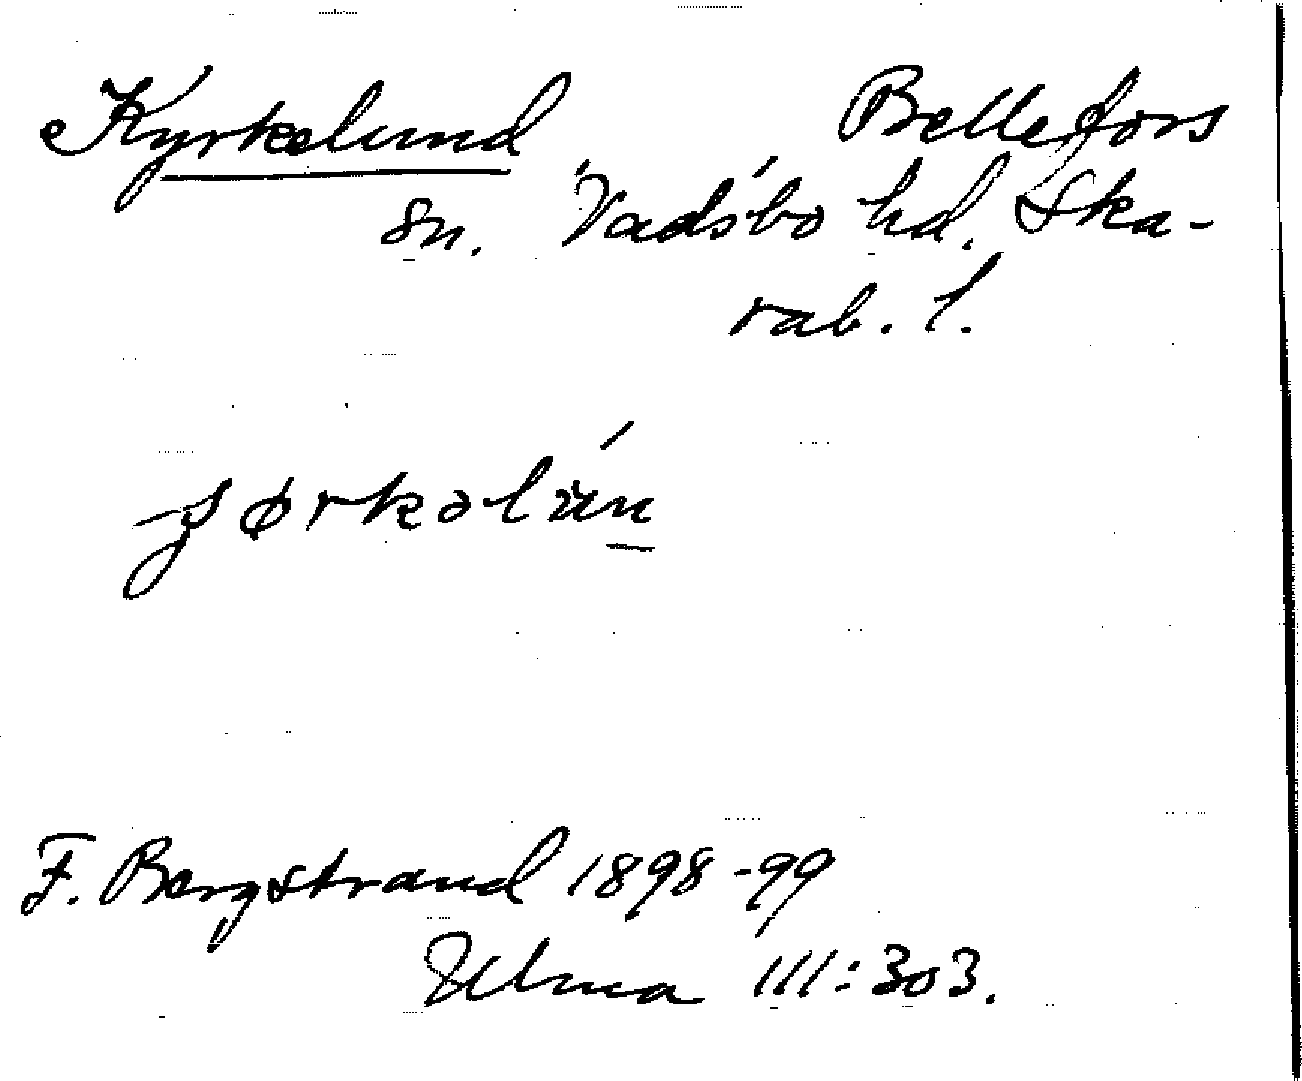 Kyrkelund Bellefors
sn. Vadsbo hd. Ska-
rab. l.
F. Bergstrand 1898-99
Ulma 111:303.